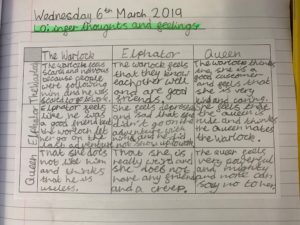 Wednesday 6th March 2019
O: inner thoughts and feelings
The Warlock
Elphator
Queen
The Warlock
The Warlock feels
scared and nervous
because people
were following
him and he was
scared
The Warlock feels
that they know
each other well
and are good
friends.
The Warlock thinks
she is a
good customer
and feels that
she is very
kind and caring.
Elphator
Elphator feels
like he was
a good friend but
the Warlock let
her go on the
last adventure
She feels depressed
and sad that she
didn't go on the
adventure with
and she did
not show up
She feels that
the queen is
rude and thinks
the Queen hates
the Warlock.
Queen
That she does
not like him
and thinks
that he is
useless.
That she is
really weird and
she does not
have any friends
and a creep.
The queen feels
very powerful
and mighty
and none can
say no to her